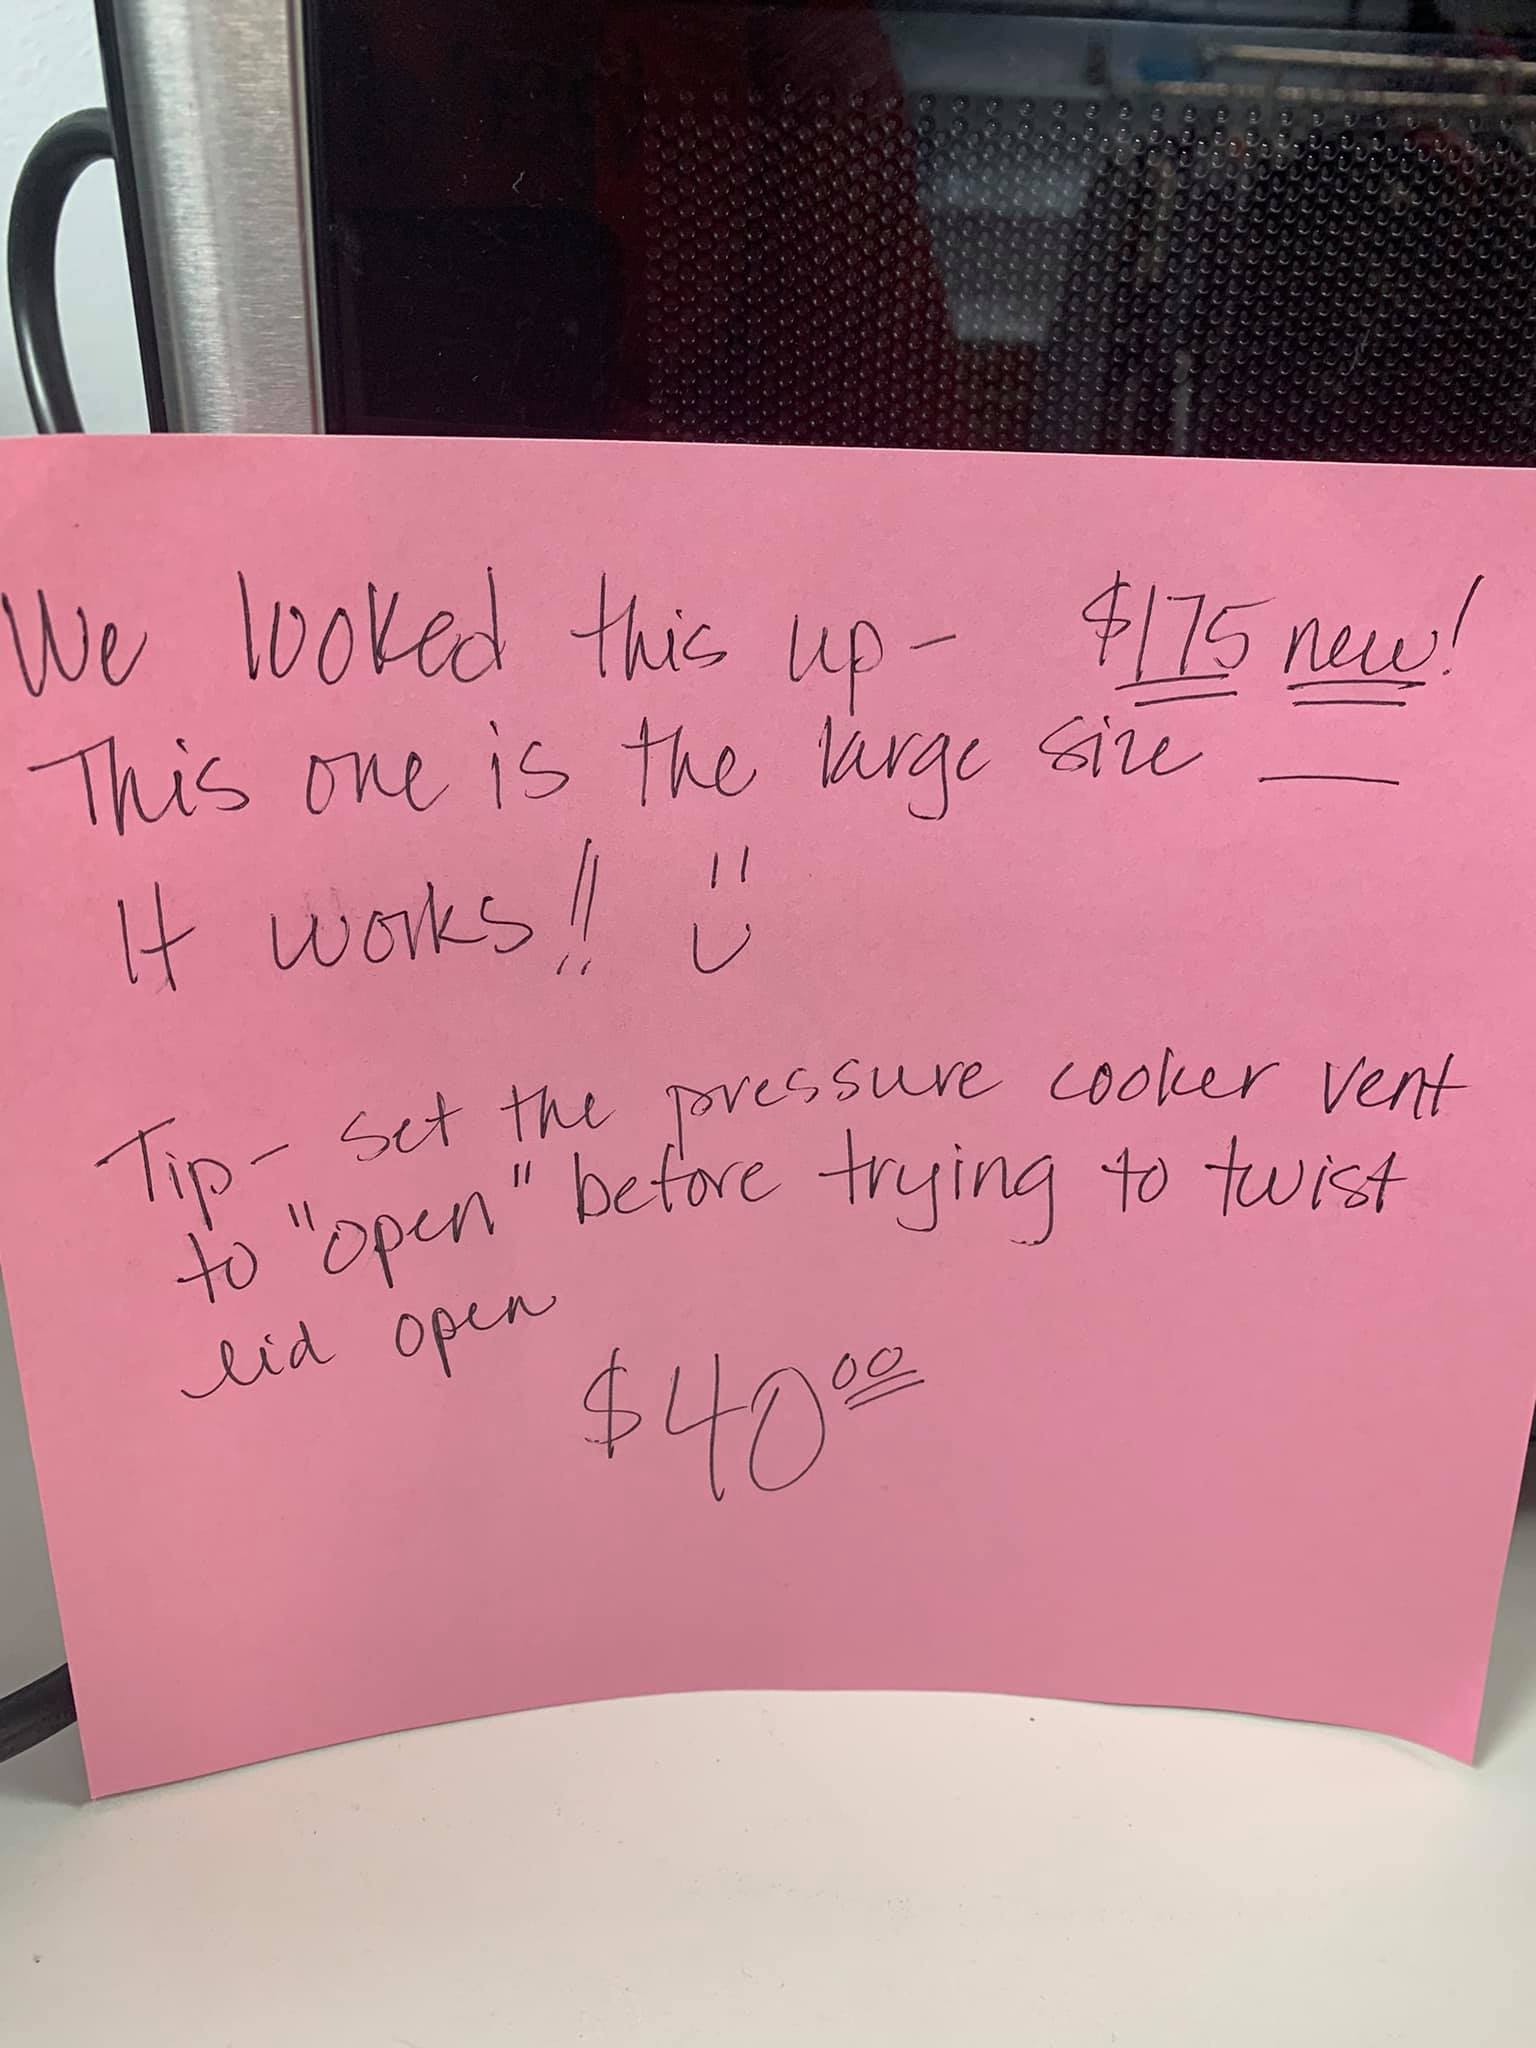 We looked this up - $175 new!
This one is the large size —
It works!! :)
Tip - set the pressure cooker vent
to "open" before trying to twist
lid open
$40.00